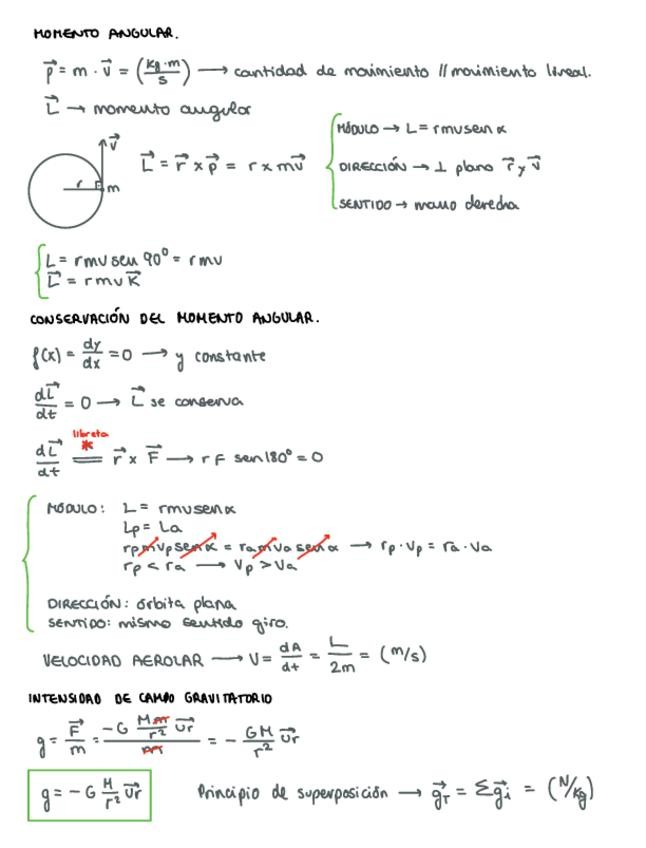 MOMENTO ANGULAR.
p⃗ = m · v⃗ = (kg·m/s) → cantidad de movimiento // movimiento lineal.
L⃗ → momento angular
v⃗
r m
L⃗ = r⃗ x p⃗ = r x mv⃗
MÓDULO → L = rmv sen α
DIRECCIÓN → ⊥ plano r⃗ y v⃗
SENTIDO → mano derecha
L = rmv sen 90° = rmv
L⃗ = rmv K⃗
CONSERVACIÓN DEL MOMENTO ANGULAR.
f(x) = dy/dx = 0 → y constante
dL⃗/dt = 0 → L⃗ se conserva
libreta
*
dL⃗/dt = r⃗ x F⃗ → r F sen 180° = 0
MÓDULO: L = rmv sen α
Lp = La
rp m vp sen α = ra m va sen α → rp · vp = ra · va
rp < ra → Vp > Va
DIRECCIÓN: órbita plana
SENTIDO: mismo sentido giro.
VELOCIDAD AEROLAR → V = dA/dt = L/2m = (m/s)
INTENSIDAD DE CAMPO GRAVITATORIO
g = F⃗/m = (-G Mm/r² u⃗r)/m = - GM/r² u⃗r
g = -G M/r² u⃗r
Principio de superposición → g⃗T = Σg⃗i = (N/kg)